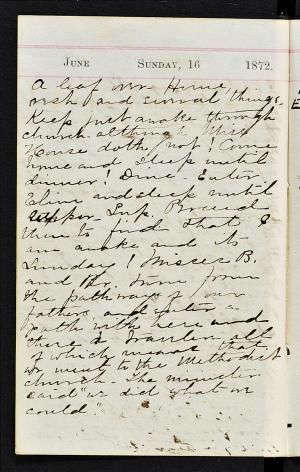 June Sunday, 16 1872.
A leaf over Home,
rest and several things.
Keep just awake through
church although Miss
House doth not! Come
home and sleep until
dinner! Dine. Enter
and sleep until
supper. Sup.
then to find that I
am awake and its
Sunday! Misses B.
and Mr. turn from
the pathway of our
fathers, and enter a
path with here and
there a traveler all
of which means that
we went to the Methodist
church. The minister
said "we did what we
could."